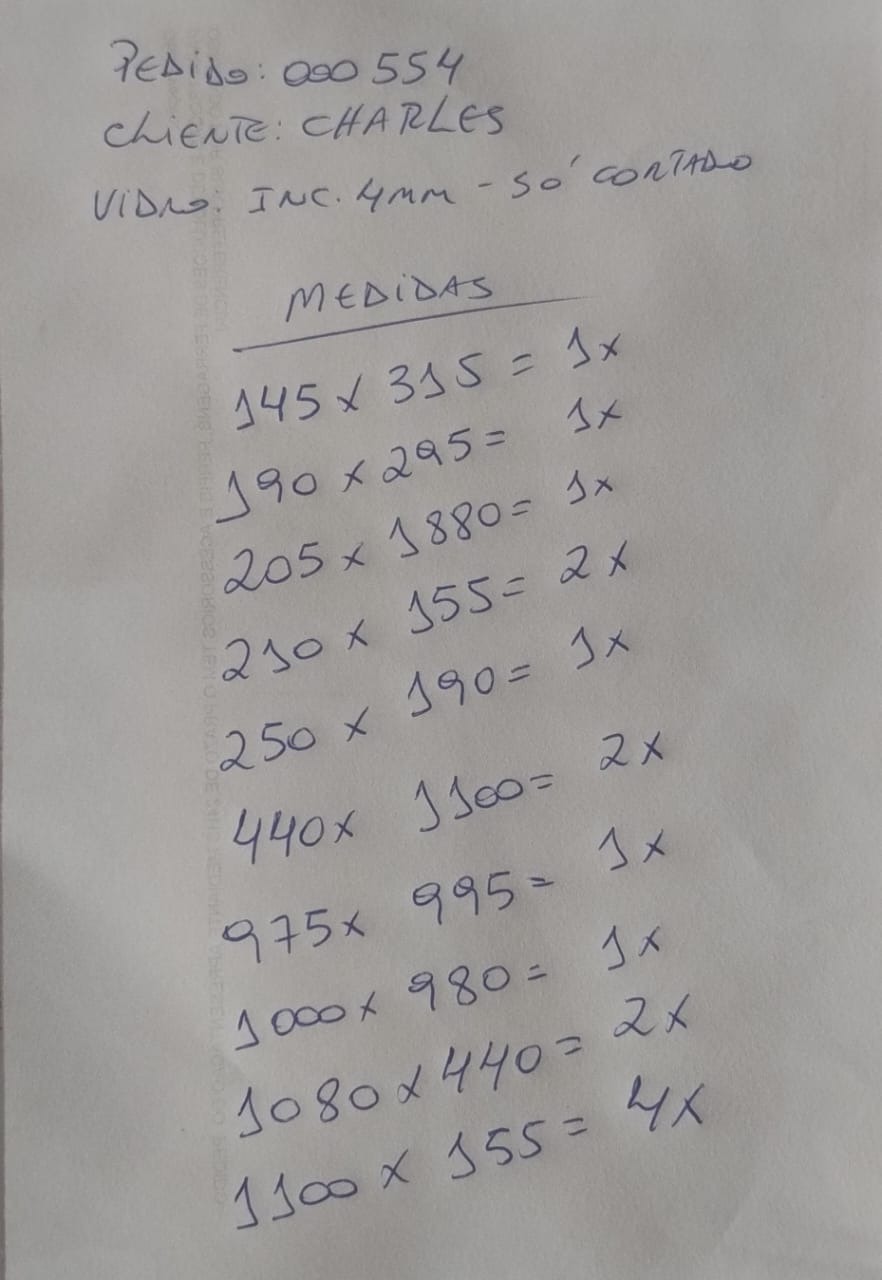 PEDIDO: 000554
CLIENTE: CHARLES
VIDRO: INC. 4MM - SÓ CORTADO
MEDIDAS
145 x 315 = 1x
190 x 295 = 1x
205 x 1880 = 1x
210 x 155 = 2x
250 x 190 = 1x
440 x 1100 = 2x
975 x 995 = 1x
1000 x 980 = 1x
1080 x 440 = 2x
1100 x 155 = 4x